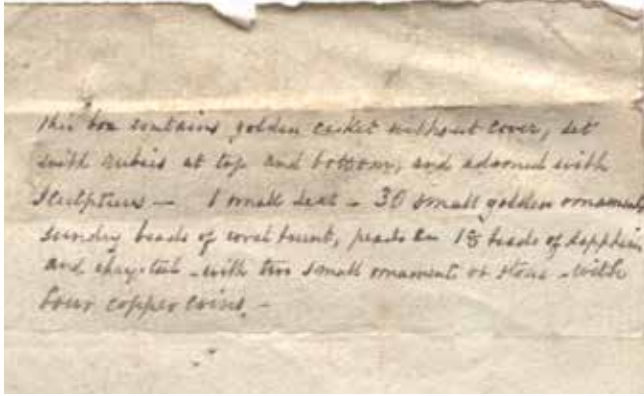 This box contains golden casket without cover, set
with rubies at top and bottom, and adorned with
sculptures — 1 small seal - 30 small golden ornaments
sundry beads of coral burnt, pearls &c 18 beads of sapphire
and crystal - with two small ornaments of stone - with
four copper coins. -